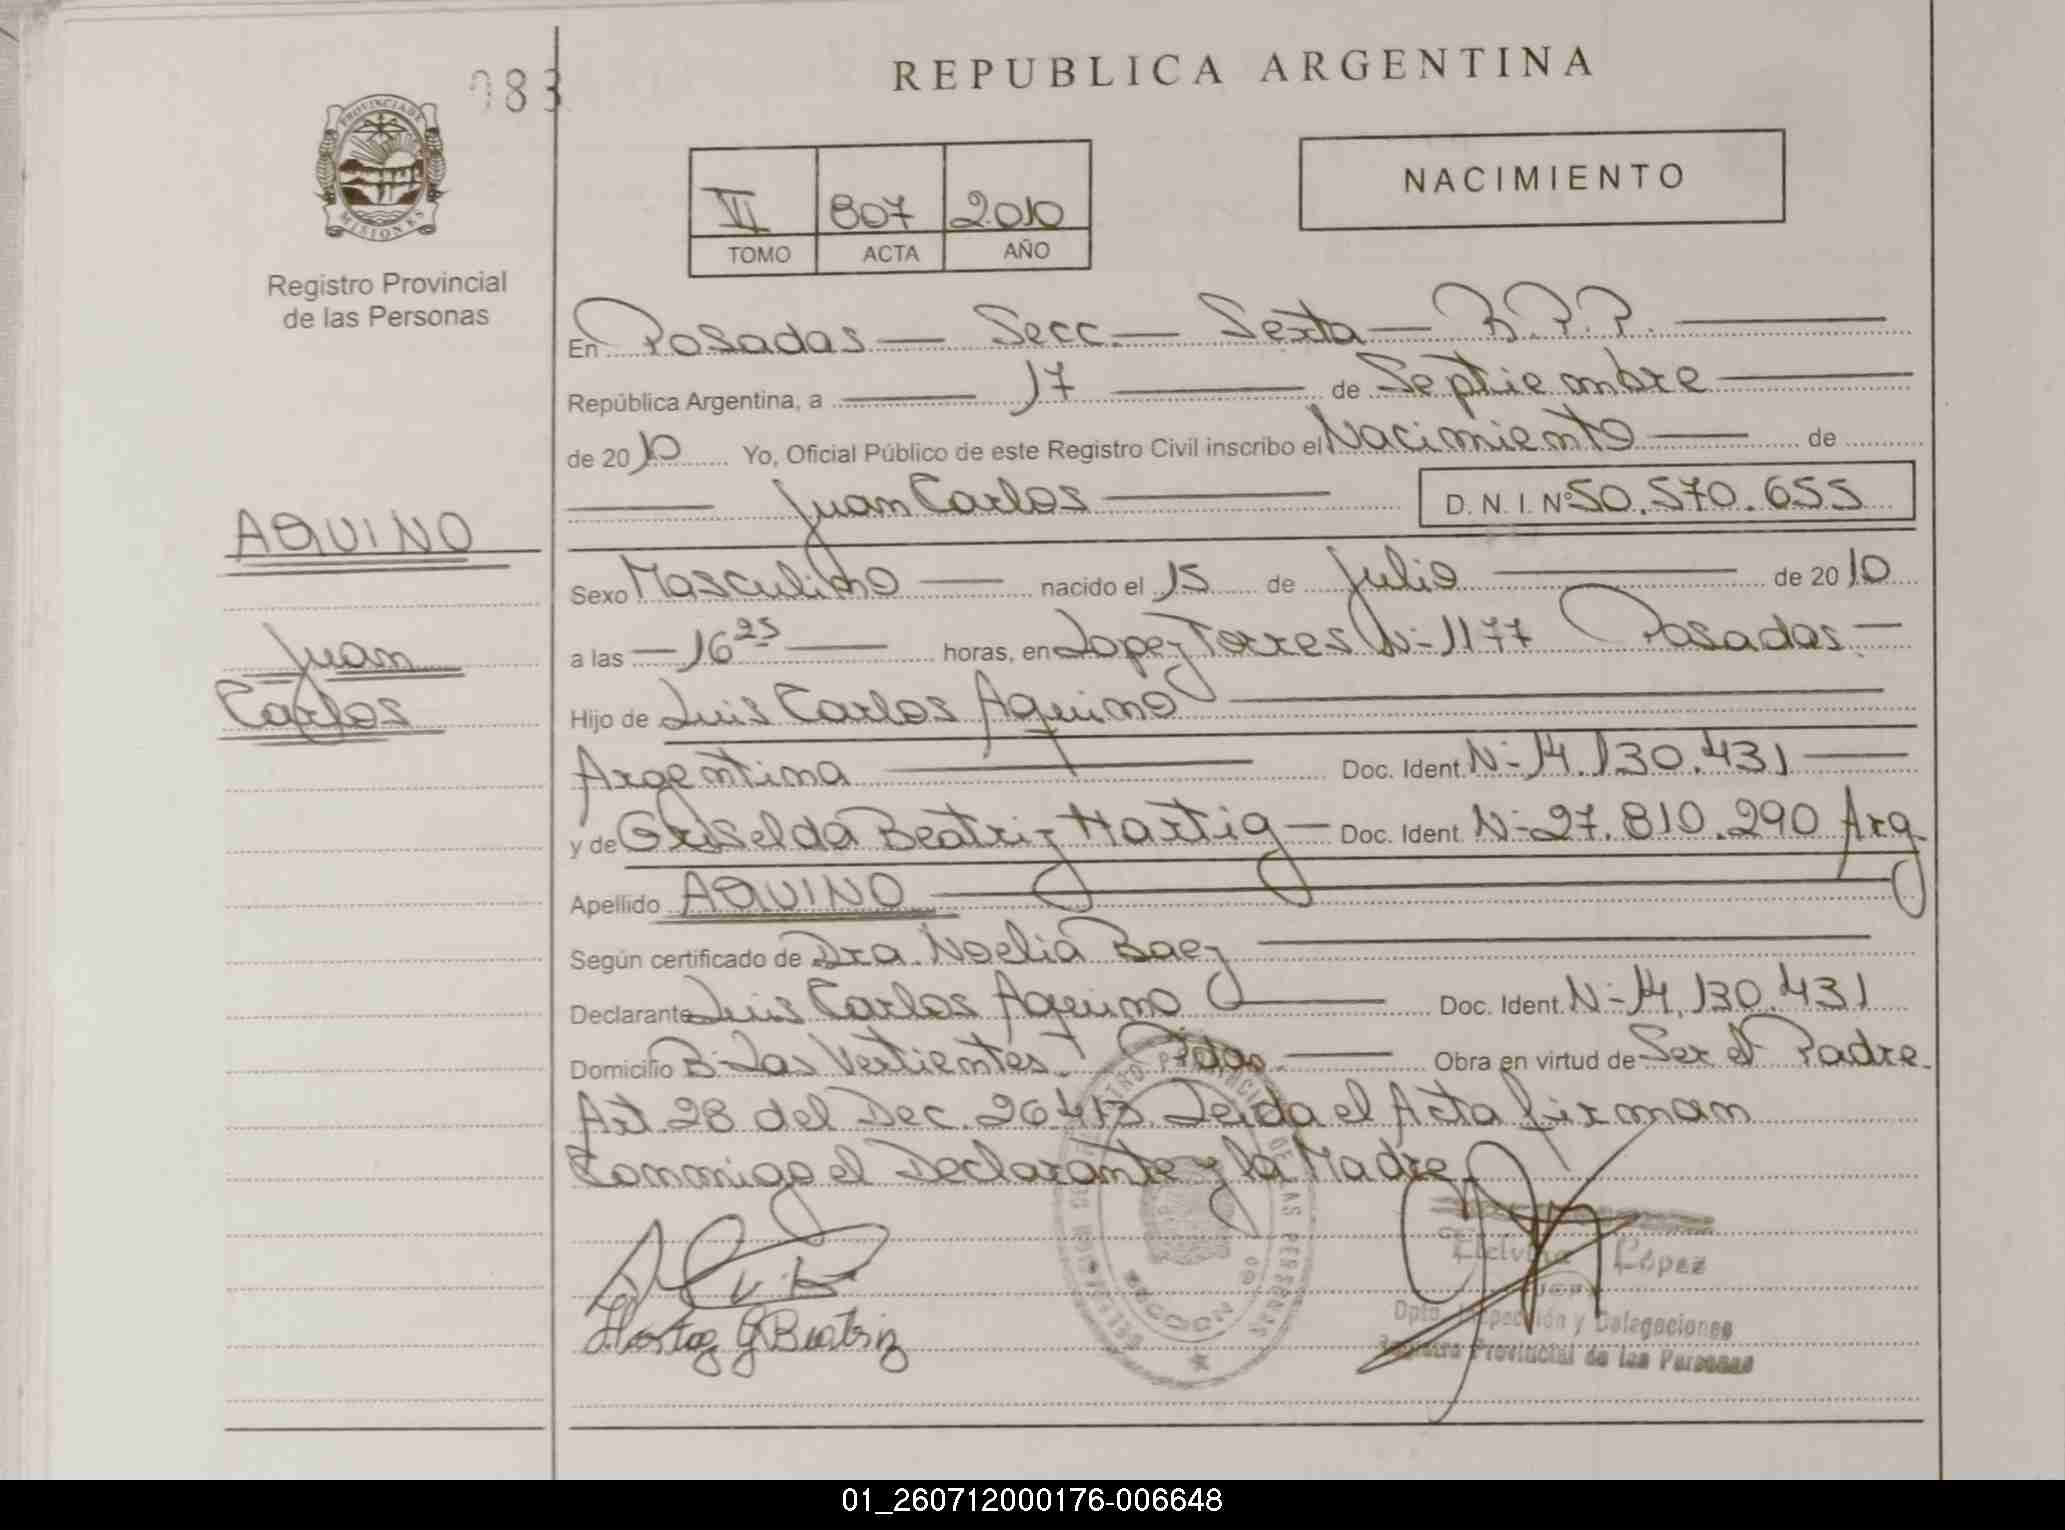 083
REPUBLICA ARGENTINA
PROVINCIA DE MISIONES
Registro Provincial
de las Personas
VI 807 2010
TOMO ACTA AÑO
NACIMIENTO
En Posadas — Secc. — Sexta — R.P.P.
República Argentina, a 17 de Septiembre
de 2010 Yo, Oficial Público de este Registro Civil inscribo el Nacimiento de
Juan Carlos D. N. I. Nº 50.570.655
AQUINO
Juan
Carlos
Sexo Masculino nacido el 15 de Julio de 2010
a las 16 25 horas, en Lopez Torres Nº 1177 Posadas.
Hijo de Luis Carlos Aquino
Argentina Doc. Ident. Nº 14.130.431
y de Griselda Beatriz Hartig Doc. Ident. Nº 27.810.290 Arg
Apellido AQUINO
Según certificado de Dra. Noelia Baez
Declarante Luis Carlos Aquino Doc. Ident. Nº 14.130.431
Domicilio Bº Las Vertientes. Pdas. Obra en virtud de Ser el Padre.
Art. 28 del Dec. 26.417. Leida el Acta firman
Conmigo el Declarante y la Madre
Hartig G Beatriz
López
Dpto. Inspección y Delegaciones
Registro Provincial de las Personas
01_260712000176-006648